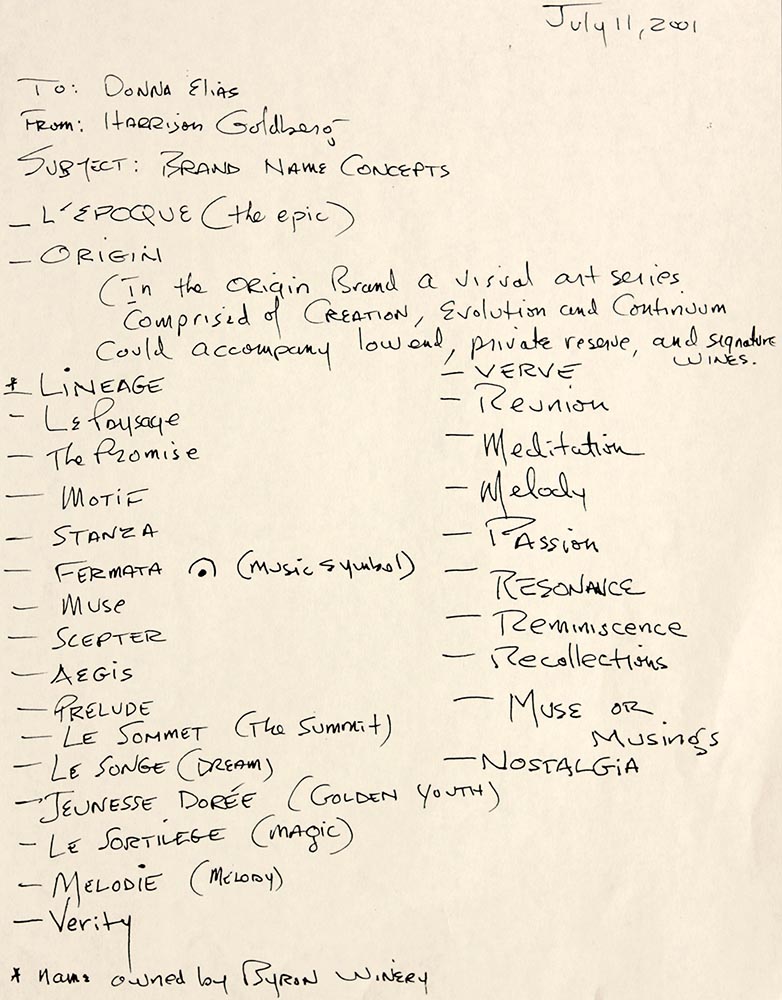 July 11, 2001
To: Donna Elias
From: Harrison Goldberg
Subject: Brand Name Concepts
– L'Epocque (the epic)
– Origin
(In the Origin Brand a visual art series
comprised of Creation, Evolution and Continuum
could accompany low end, private reserve, and signature
wines.
* Lineage
– Le Paysage
– The Promise
– Motif
– Stanza
– Fermata 𝄐 (music symbol)
– Muse
– Scepter
– Aegis
– Prelude
– Le Sommet (The Summit)
– Le Songe (Dream)
– Jeunesse Dorée (Golden Youth)
– Le Sortilege (magic)
– Melodie (Melody)
– Verity
– Verve
– Reunion
– Meditation
– Melody
– Passion
– Resonance
– Reminiscence
– Recollections
– Muse or
Musings
– Nostalgia
* name owned by Byron Winery